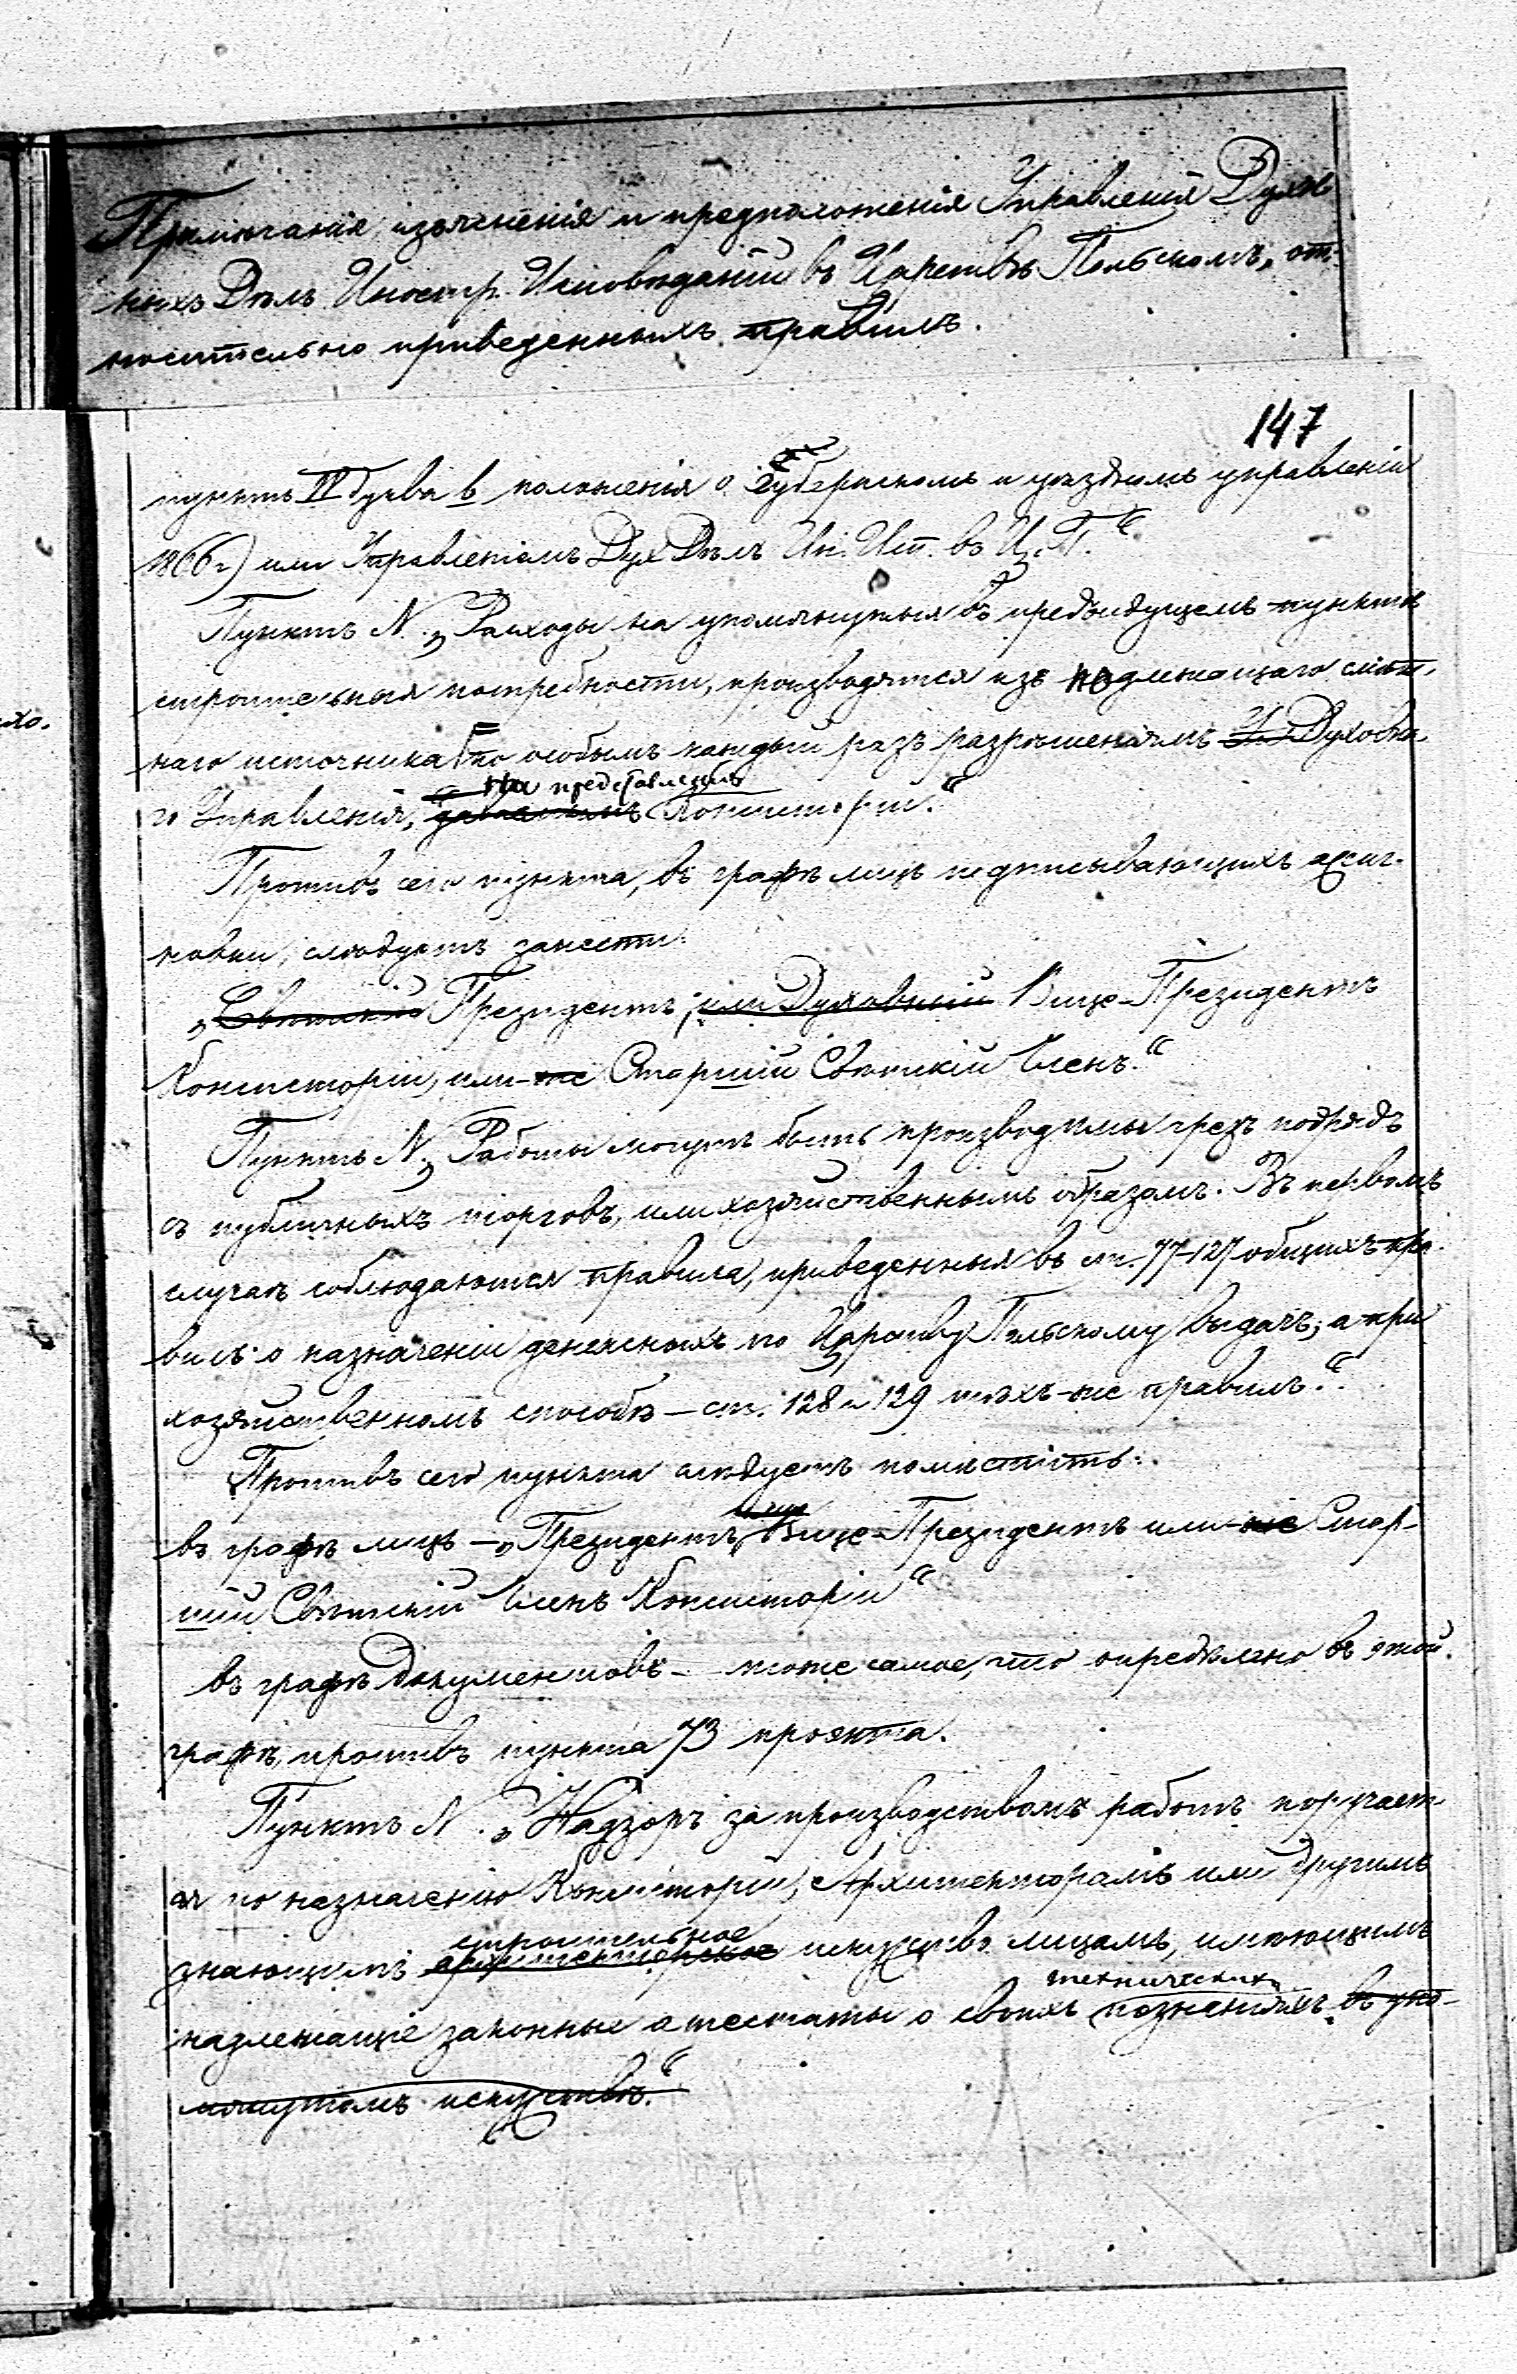 Примѣчанія, изъясненія и предположенія Управленія Духов
ныхъ Дѣлъ Иностр. Исповѣданій въ Царствѣ Польскомъ, от-
носительно приведенныхъ правилъ.
147
пунктъ IV буква в положенія о губернскомъ и уѣздномъ управленіи
1866 г.) или Управленіемъ Дух. Дѣлъ Ин. Исп. въ Ц. П.“
Пунктъ N. „Расходы на упомянутыя въ предъидущемъ пунктѣ
строительныя потребности, производятся изъ подлежащаго смѣт-
наго источника по особымъ каждый разъ разрѣшеніямъ Духовна-
го Управленія, на представленія Консисторіи.“
Противъ сего пункта, въ графѣ лицъ подписывающихъ ассиг-
новки, слѣдуетъ занести:
„Свѣтскій Президентъ, или Духовный Вице-Президентъ
Консисторіи, или-же Старшій Свѣтскій Членъ.“
Пунктъ N. „Работы могутъ быть производимы чрезъ подрядъ
съ публичныхъ торговъ, или хозяйственнымъ образомъ. Въ первомъ
случаѣ соблюдаются правила, приведенныя въ ст. 77-127 общихъ пра-
вилъ о назначеніи денежныхъ по Царству Польскому выдачъ; а при
хозяйственномъ способѣ – ст. 128 и 129 тѣхъ-же правилъ.“
Противъ сего пункта слѣдуетъ помѣстить:
въ графѣ лицъ – „Президентъ, или Вице-Президентъ или-же Стар-
шій Свѣтскій Членъ Консисторіи“
въ графѣ документовъ – тоже самое, что опредѣлено въ этой
графѣ, противъ пункта 73 проэкта.
Пунктъ N. „Надзоръ за производствомъ работъ поручает-
ся по назначенію Консисторіи, Архитекторамъ или другимъ
строительное
знающимъ архитекторское искуство лицамъ, имѣющимъ
техническихъ
надлежащіе законные атестаты о своихъ познаніяхъ въ упо-
мянутомъ искуствѣ.“